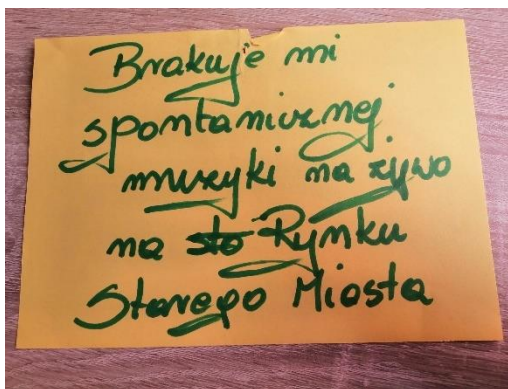 Brakuje mi
spontanicznej
muzyki na żywo
na sto Rynku
Starego Miasta